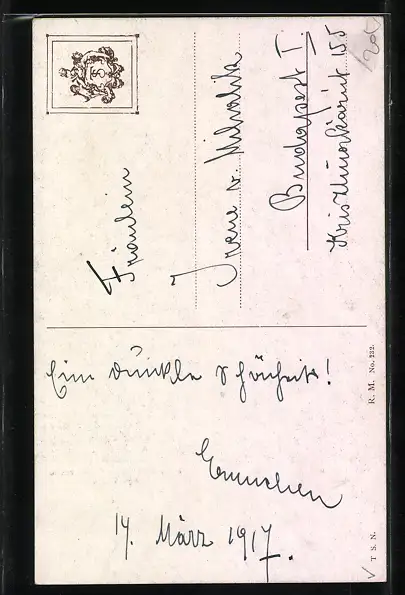 Fräulein
Irene v.
Budapest I.
Krisztinakörút 155
Eine dunkle Schönheit!
14. März 1917.
R. M. No. 232.
T. S. N.